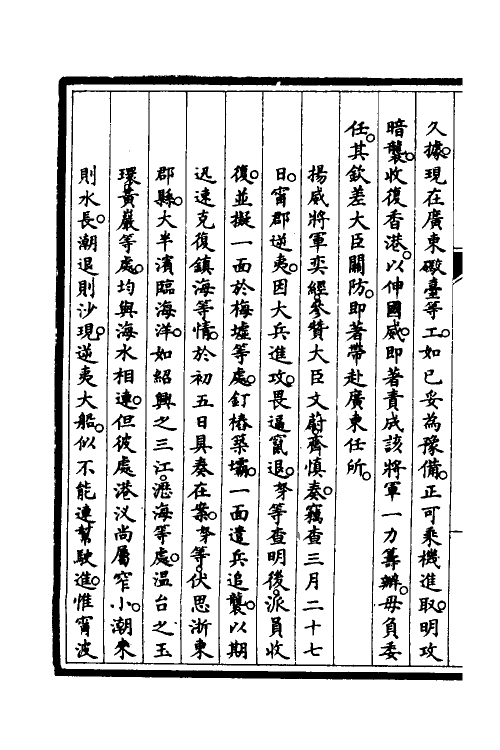 久據。現在廣東礮臺等工。如已妥為豫備。正可乘機進取。明攻
暗襲。收復香港。以伸國威。即著責成該將軍一力籌辦。毋負委
任。其欽差大臣關防。即著帶赴廣東任所。
揚威將軍奕經。參贊大臣文蔚齊慎奏。竊查三月二十七
日。甯郡逆夷。因大兵進攻。畏逼竄退。孥等查明後。派員收
復。並擬一面於梅墟等處。釘樁築壩。一面遣兵追襲。以期
迅速克復鎮海等情。於初五日具奏在案。孥等。伏思浙東
郡縣。大半濱臨海洋。如紹興之三江。瀝海等處。温台之玉
環黃巖等處。均與海水相連。但彼處港汊尚屬窄小。潮來
則水長。潮退則沙現。逆夷大船。似不能連幫駛進。惟甯波